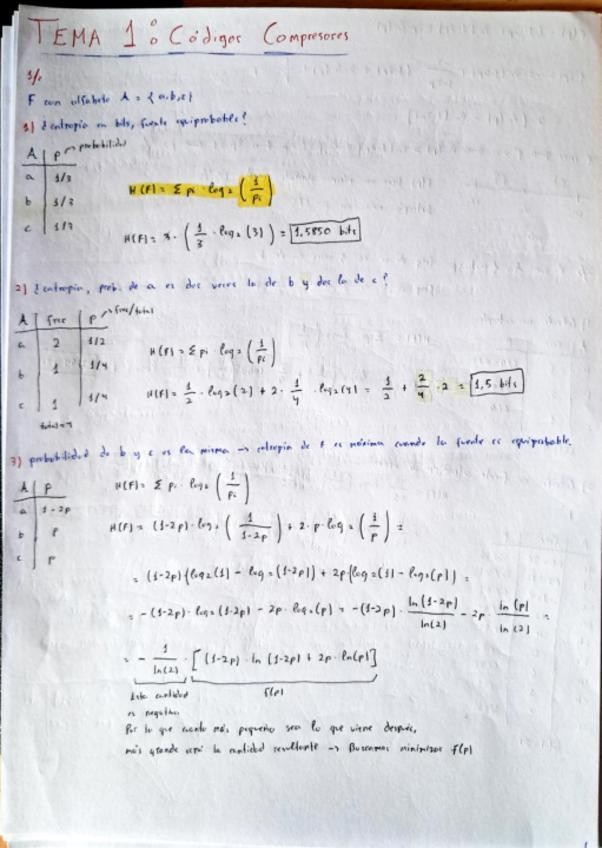 TEMA 1: Códigos Compresores
1/.
F con alfabeto A = {a,b,c}
1) ¿entropía en bits, fuente equiprobable?
A | P → probabilidad
a | 1/3
b | 1/3
c | 1/3
H(F) = Σ pi · log₂ (1/pi)
H(F) = 3 · (1/3 · log₂(3)) = 1,5850 bits
2) ¿entropía, prob. de a es dos veces la de b y dos la de c?
A | frec | P → frec/total
a | 2 | 1/2
b | 1 | 1/4
c | 1 | 1/4
total = 4
H(F) = Σ pi · log₂ (1/pi)
H(F) = 1/2 · log₂(2) + 2 · 1/4 · log₂(4) = 1/2 + 2/4 · 2 = 1,5 bits
3) probabilidad de b y c es la misma → entropía de F es máxima cuando la fuente es equiprobable.
A | P
a | 1-2p
b | p
c | p
H(F) = Σ pi · log₂ (1/pi)
H(F) = (1-2p) · log₂ (1/1-2p) + 2 · p · log₂ (1/p) =
= (1-2p) (log₂(1) - log₂(1-2p)) + 2p (log₂(1) - log₂(p)) =
= -(1-2p) · log₂(1-2p) - 2p · log₂(p) = -(1-2p) · ln(1-2p)/ln(2) - 2p · ln(p)/ln(2) =
= - 1/ln(2) · [(1-2p) · ln (1-2p) + 2p · ln(p)]
Esta cantidad f(p)
es negativa
Por lo que cuanto más pequeño sea lo que viene después,
más grande será la cantidad resultante → Buscamos minimizar f(p)